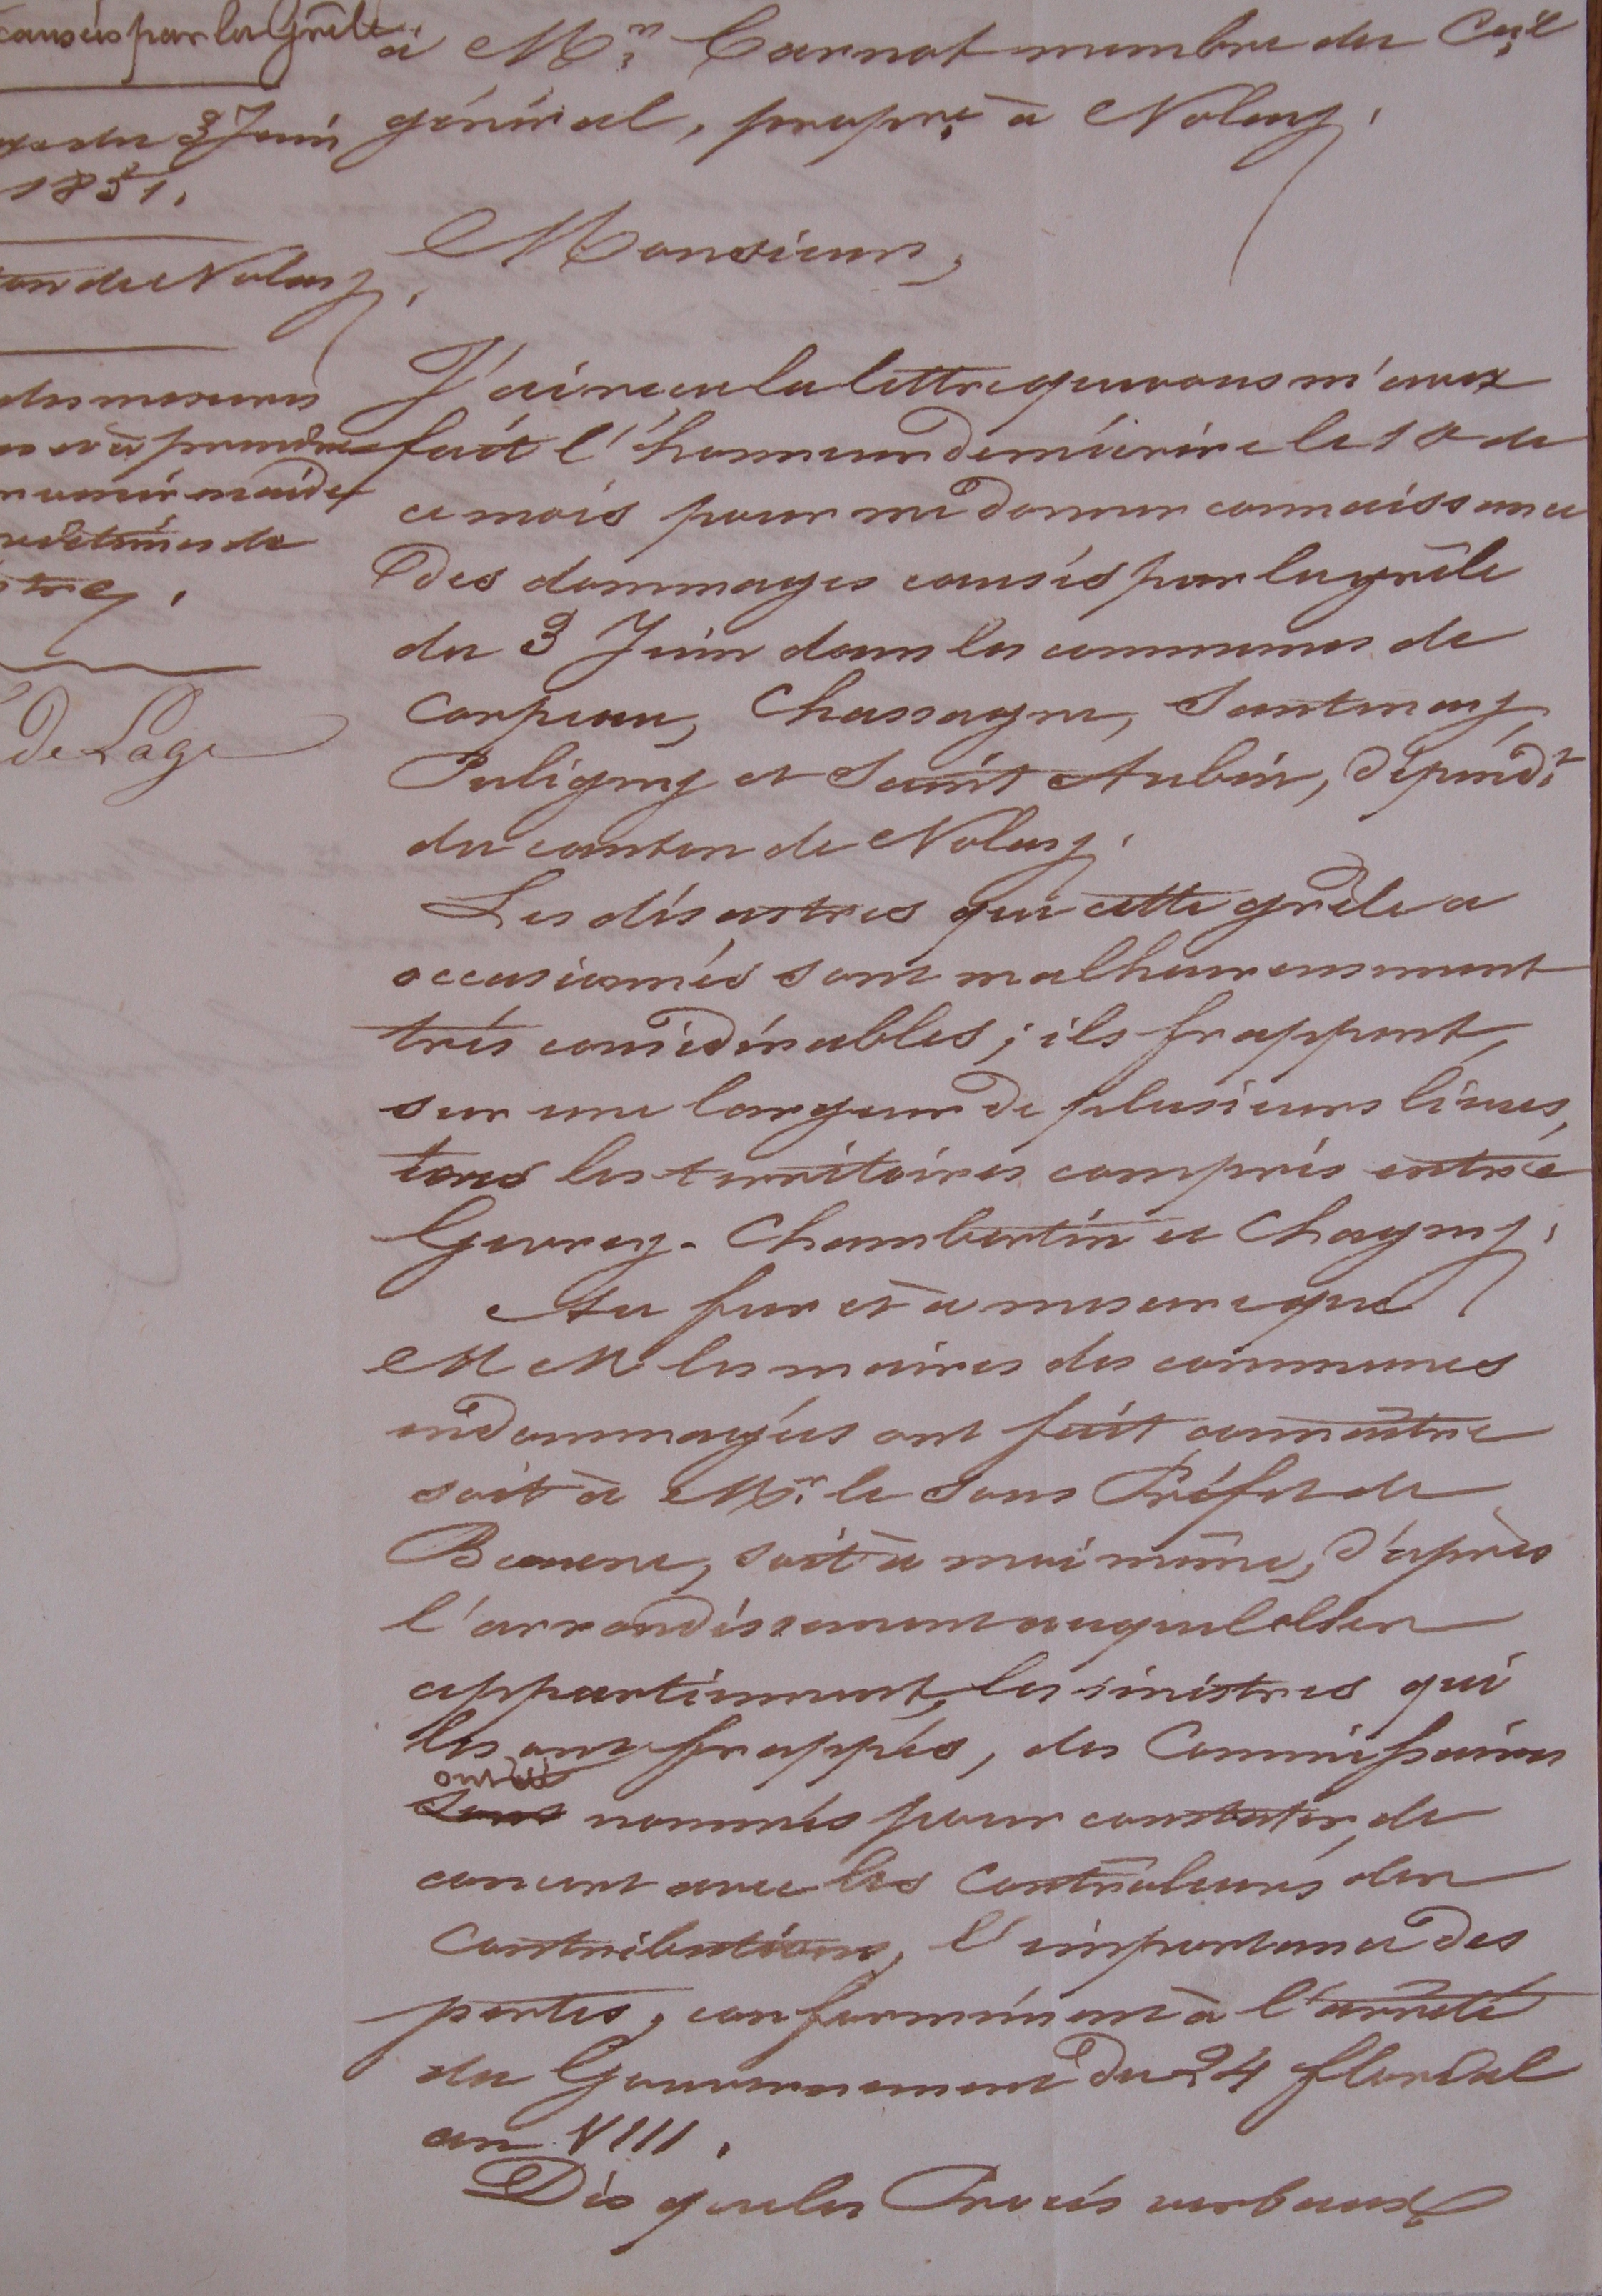 causés par la Grêle
du 3 Juin
1851.
de Nolay.
des mesures
à prendre
venir en aide
victimes de
De Lage
à Mr. Carnot membre du Ceil
général, propre. à Nolay.
Monsieur,
J'ai reçu la lettre que vous m'avez
fait l'honneur de m'écrire le 10 de
ce mois pour me donner connaissance
des dommages causés par la grêle
du 3 Juin dans les communes de
Corpeau, Chassagne, Santenay,
Puligny et Saint Aubin, dépendt.
du canton de Nolay.
Les désastres que cette grêle a
occasionnés sont malheureusement
très considérables ; ils frappent,
sur une largeur de plusieurs lieues,
tous les territoires compris entre
Gevrey-Chambertin et Chagny.
Au fur et à mesure que
MM les maires des communes
endommagées ont fait connaître
soit à Mr. le Sous Préfet de
Beaune, soit à moi même, d'après
l'arrondissement auquel elles
appartiennent, les sinistres qui
les ont frappés, des Commissaires
ont été
sont nommés pour constater, de
concert avec les Contrôleurs des
Contributions, l'importance des
pertes, conformément à l'arrêté
du Gouvernement du 24 floréal
an VIII.
Dès que les Procès verbaux